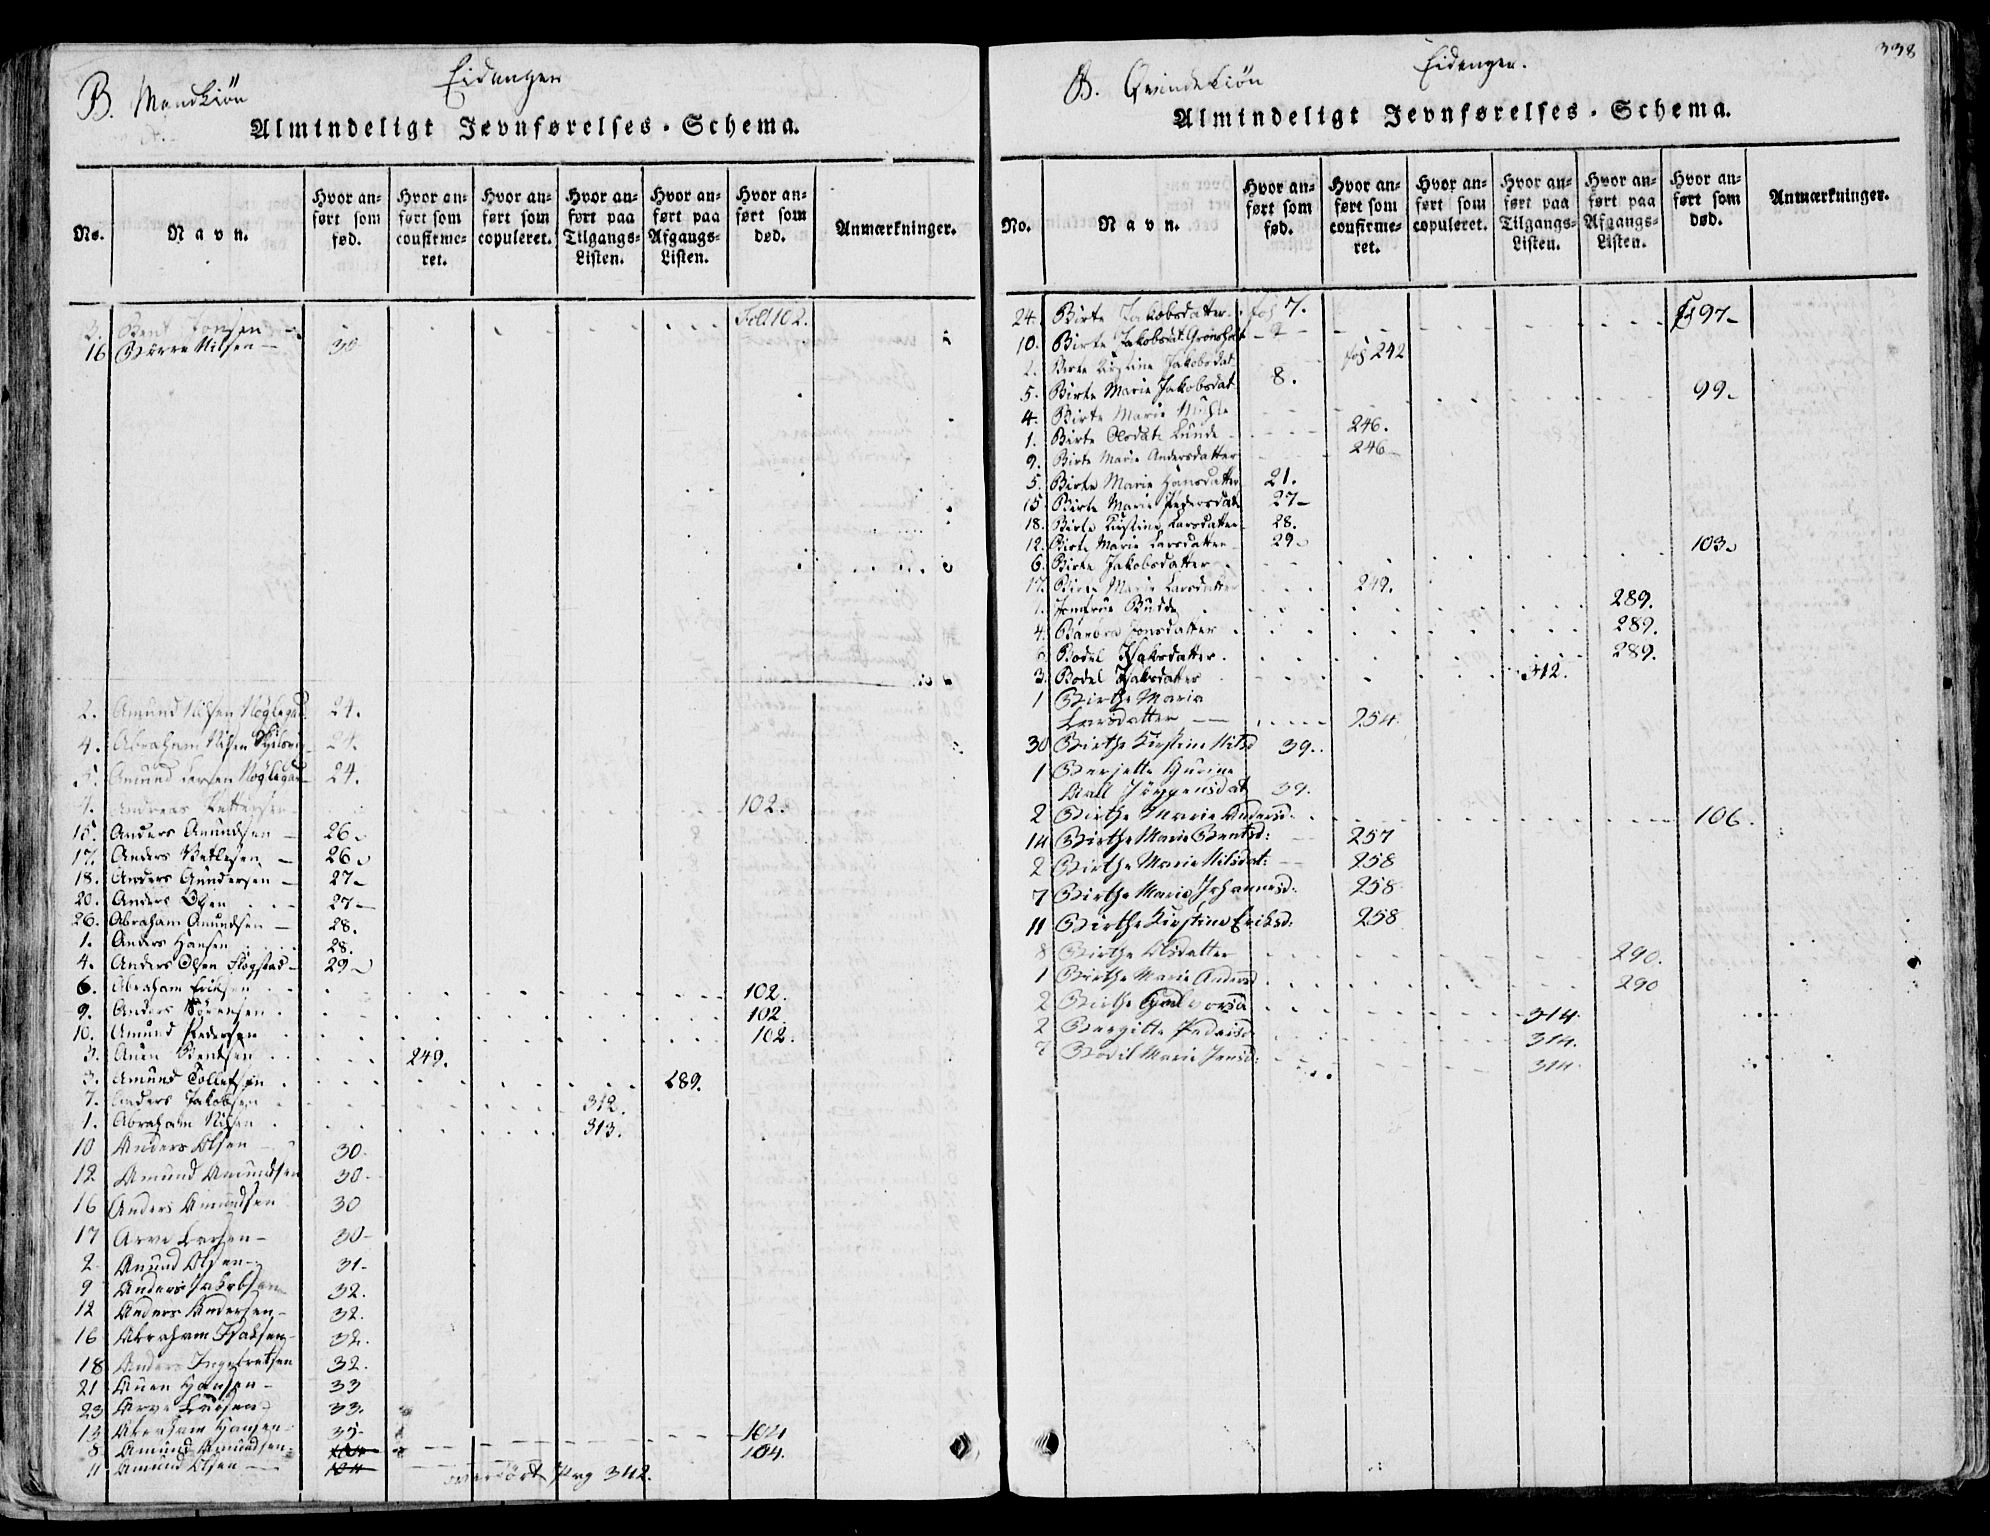 B. Mandkiön
Eidanger
Almindeligt Jevnførelses-Schema.
No.
Navn.
Hvor anført som fød.
Hvor anført som confirmeret.
Hvor anført som copuleret.
Hvor anført paa Tilgangs-Listen.
Hvor anført paa Afgangs-Listen.
Hvor anført som død.
Anmærkninger.
3. Bent Jonsen Fol 102.
16 Börre Nilsen 30
2. Amund Nilsen 24.
4. Abraham Nilsen 24.
5. Amund Larsen 24.
7. Andreas 102.
15. Anders Amundsen 26
17. Anders Vetlesen 26
18. Anders Gundersen 27
20. Anders Olsen 27
26. Abraham Amundsen 28.
1. Anders Hansen 28.
4. Anders Olsen Flogstad 29
6. Abraham Eriksen 102.
9. Anders Sörensen 102
10. Amund Pedersen 102.
3. Auen Bentsen 249.
3. Amund Tollefsen 289.
7. Anders Jakobsen 312.
1. Abraham Nilsen 313.
10 Anders Olsen 30.
12 Amund Amundsen 30.
16 Anders Amundsen 30
17 Arve Larsen 30
2 Amund Olsen 31
9 Anders Jakobsen 32.
12 Anders Andersen 32.
16 Abraham Isaksen 32.
18 Anders Ingebretsen 32.
21 Auen Hansen 33
23 Arve Larsen 33.
13 Abraham Hansen 35 104
8 Amund Amundsen 104 104.
11 Amund Olsen 104
overfört Pag 342.
338
B. Qvindekiön
Eidanger.
Almindeligt Jevnførelses-Schema.
No.
Navn.
Hvor anført som fød.
Hvor anført som confirmeret.
Hvor anført som copuleret.
Hvor anført paa Tilgangs-Listen.
Hvor anført paa Afgangs-Listen.
Hvor anført som død.
Anmærkninger.
24. Birte Jakobsdatter fol 7. 97
10. Birte Jakobsdat
2. Birte Kirstine Jakobsdat fol 242
5. Birte Marie Jakobsdat 8.
4. Birte Marie 99
1. Birte Olsdat Lunde 246.
9. Birte Marie Andersdatter 246
5. Birte Marie Hansdatter 21.
15. Birte Marie Pedersdatt 27
18. Birte Kirstine Larsdatter 28.
12. Birte Marie Larsdatter 29
6. Birte Jakobsdatter 103
17. Birte Marie Larsdatter 249.
1. Jomfrue Budde 289.
4. Barbra Jonsdatter 289.
Bodel Isaksdatter. 289.
3. Bodel Isaksdatter 312.
1 Birthe Maria
Larsdatter 254.
30 Birthe Kirstine Nilsd 39.
1 Berjette Gurine
Mall Jörgensdat 39.
2 Birthe Marie Andersd. 106.
14 Birthe Marie Bentsd: 257
2 Birthe Marie Nilsdat: 258
7 Birthe Marie Johannesd: 258
11 Birthe Kirstine Eriksd: 258
8 Birthe Olsdatter 290.
1 Birthe Marie Andersd 290
2 Birthe Halvorsd 314
2 Bergitte Pedersd 314.
7 Bodil Marie Jensd: 314